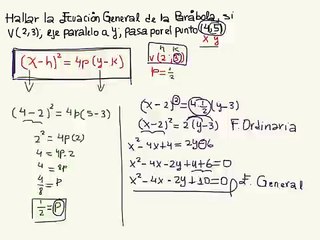 Hallar la Ecuación General de la Parábola, si
V(2,3), eje paralelo a y, pasa por el punto (4,5)
x y
(x-h)² = 4p(y-k)
h k
V(2,3)
p=½
(4-2)² = 4p(5-3)
2² = 4p(2)
4 = 4p·2
4 = 8p
4/8 = p
½ = p
(x-2)² = 4·½(y-3)
(x-2)² = 2(y-3) F. Ordinaria
x²-4x+4 = 2y-6
x²-4x-2y+4+6=0
x²-4x-2y+10=0 F. General